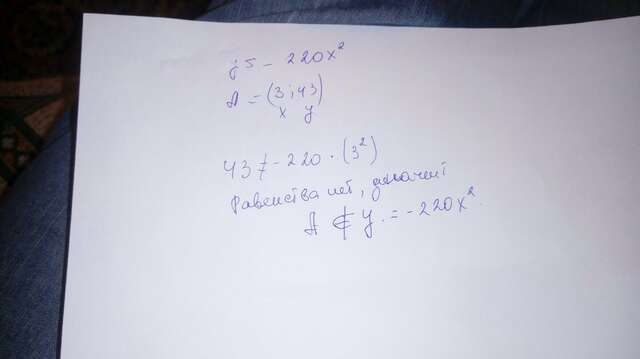 y = - 220x²
A = (3;43)
x y
43 ≠ - 220 · (3²)
Равенства нет, значит
A ∉ y = - 220x².